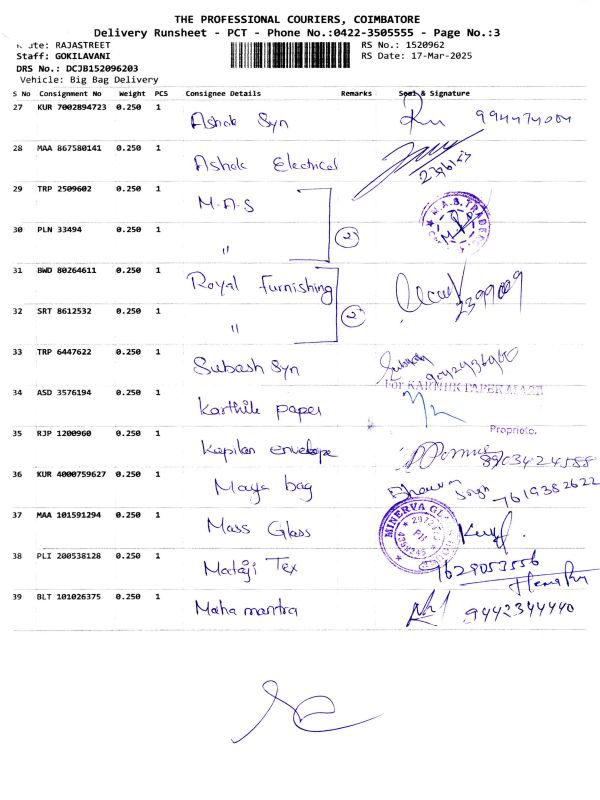 THE PROFESSIONAL COURIERS, COIMBATORE
Delivery Runsheet - PCT - Phone No.:0422-3505555 - Page No.:3
Route: RAJASTREET RS No.: 1520962
Staff: GOKILAVANI RS Date: 17-Mar-2025
DRS No.: DCJB152096203
Vehicle: Big Bag Delivery
S No Consignment No Weight PCS Consignee Details Remarks Seal & Signature
27 KUR 7002894723 0.250 1 Ashok Syn
28 MAA 867580141 0.250 1 Ashok Electrical
29 TRP 2509602 0.250 1 M.A.S
30 PLN 33494 0.250 1 " 2
31 BWD 80264611 0.250 1 Royal furnishing
32 SRT 8612532 0.250 1 " 2
33 TRP 6447622 0.250 1 Subash Syn
For KARTHIK PAPER MART
34 ASD 3576194 0.250 1 Karthik paper
Proprieto.
35 RJP 1200960 0.250 1 Kapilan envelope 8903424588
36 KUR 4000759627 0.250 1 Maya bag 7619382622
37 MAA 101591294 0.250 1 Mass Glass MINERVA
38 PLI 200538128 0.250 1 Mataji Tex 7629053556
39 BLT 101026375 0.250 1 Maha mantra 9442344440